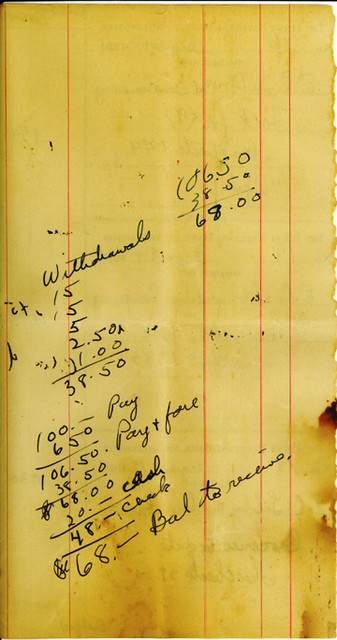 106.50
38.50
68.00
Withdrawals
15
15
5
2.50
1.00
38.50
100.— Pay
6 50
106.50. Pay + fare
38.50
$68.00
20.— cash
48.— check
$68.— Bal to receive.